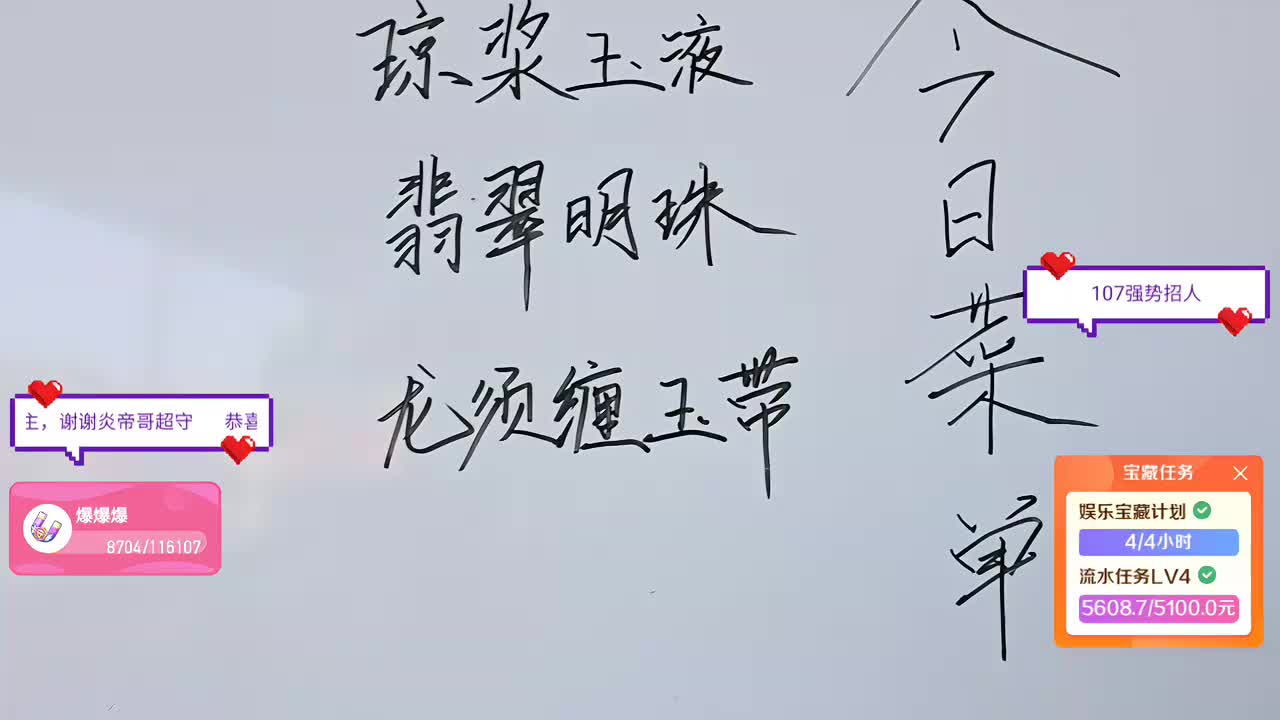 琼浆玉液
翡翠明珠
龙须缠玉带
今日菜单
107强势招人
主，谢谢炎帝哥超守 恭喜
爆爆爆
8704/116107
宝藏任务
娱乐宝藏计划
4/4小时
流水任务LV4
5608.7/5100.0元